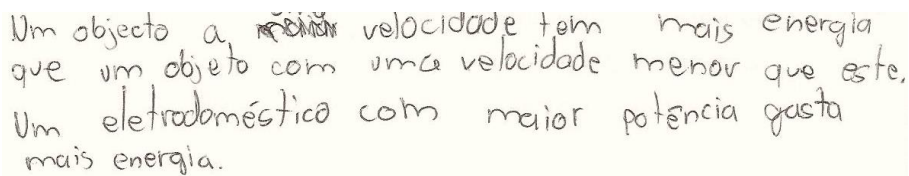 Um objecto a maior velocidade tem mais energia
que um objeto com uma velocidade menor que este.
Um eletrodoméstico com maior potência gasta
mais energia.